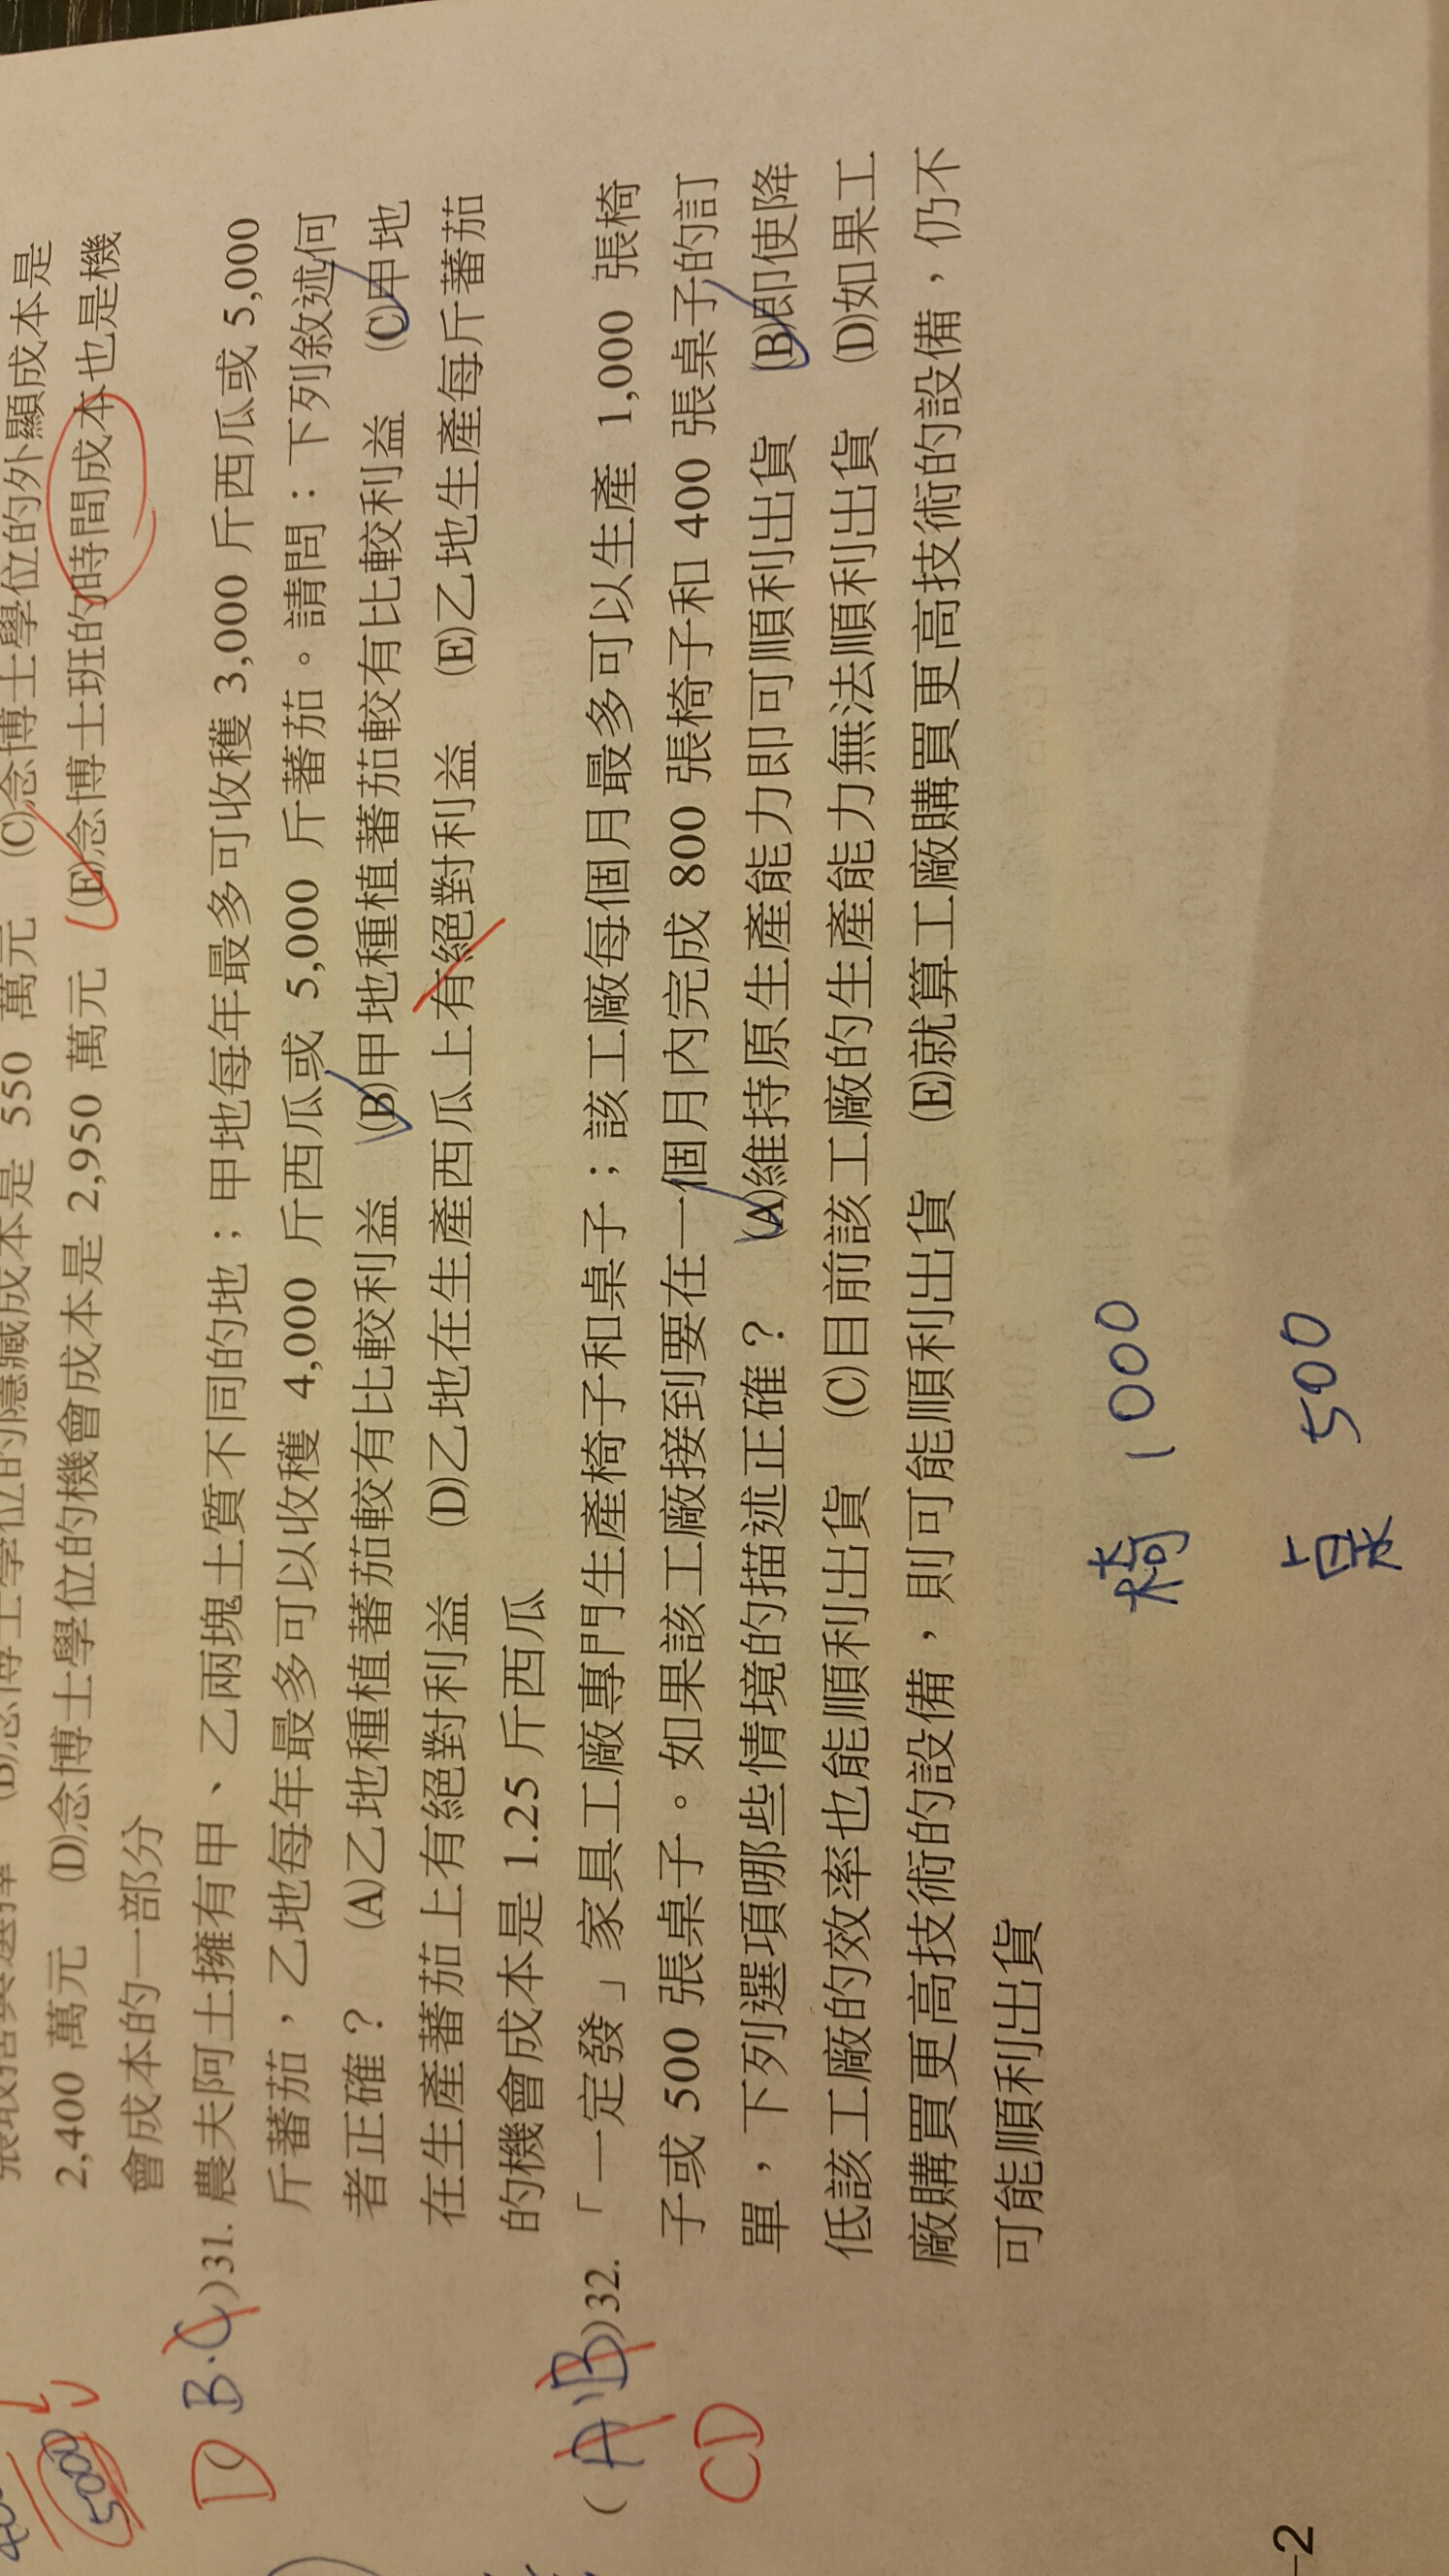 張取捨與選擇 (B)念博士學位的隱藏成本是 550 萬元 (C)念博士學位的外顯成本是
2,400 萬元 (D)念博士學位的機會成本是 2,950 萬元 (E)念博士班的時間成本也是機
會成本的一部分
D B.C )31. 農夫阿土擁有甲、乙兩塊土質不同的地；甲地每年最多可收穫 3,000 斤西瓜或 5,000
斤蕃茄，乙地每年最多可以收穫 4,000 斤西瓜或 5,000 斤蕃茄。請問：下列敘述何
者正確？ (A)乙地種植蕃茄較有比較利益 (B)甲地種植蕃茄較有比較利益 (C)甲地
在生產蕃茄上有絕對利益 (D)乙地在生產西瓜上有絕對利益 (E)乙地生產每斤蕃茄
的機會成本是 1.25 斤西瓜
( A B )32. 「一定發」家具工廠專門生產椅子和桌子；該工廠每個月最多可以生產 1,000 張椅
子或 500 張桌子。如果該工廠接到要在一個月內完成 800 張椅子和 400 張桌子的訂
單，下列選項哪些情境的描述正確？ (A)維持原生產能力即可順利出貨 (B)即使降
低該工廠的效率也能順利出貨 (C)目前該工廠的生產能力無法順利出貨 (D)如果工
廠購買更高技術的設備，則可能順利出貨 (E)就算工廠購買更高技術的設備，仍不
可能順利出貨
CD
5000
椅 1000
桌 500
-2